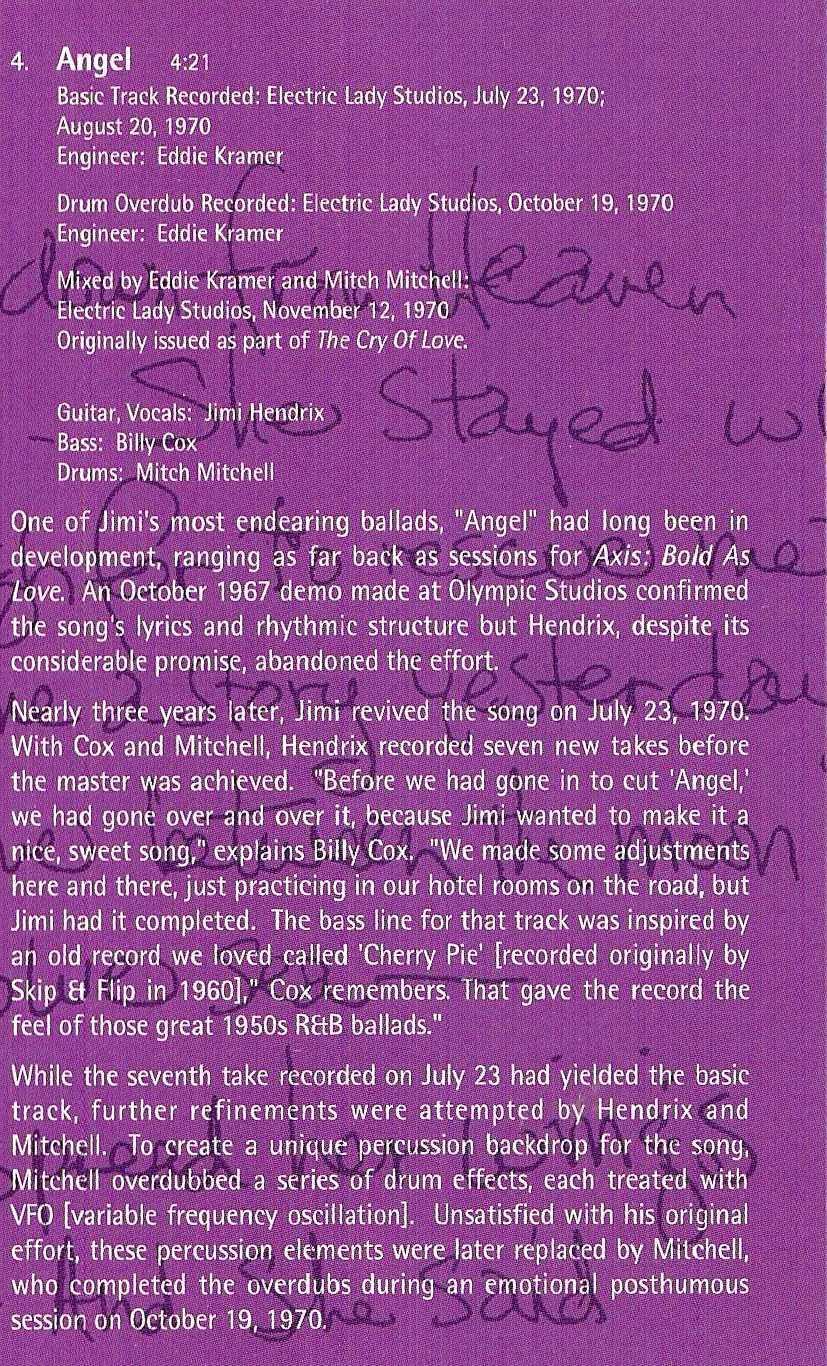 4. Angel 4:21
Basic Track Recorded: Electric Lady Studios, July 23, 1970;
August 20, 1970
Engineer: Eddie Kramer
Drum Overdub Recorded: Electric Lady Studios, October 19, 1970
Engineer: Eddie Kramer
down from Heaven
Mixed by Eddie Kramer and Mitch Mitchell:
Electric Lady Studios, November 12, 1970
Originally issued as part of The Cry Of Love.
- She Stayed wi
Guitar, Vocals: Jimi Hendrix
Bass: Billy Cox
Drums: Mitch Mitchell
One of Jimi's most endearing ballads, "Angel" had long been in
development, ranging as far back as sessions for Axis: Bold As
for to rescue me
Love. An October 1967 demo made at Olympic Studios confirmed
the song's lyrics and rhythmic structure but Hendrix, despite its
considerable promise, abandoned the effort.
me a Story yesterday
Nearly three years later, Jimi revived the song on July 23, 1970.
With Cox and Mitchell, Hendrix recorded seven new takes before
the master was achieved. "Before we had gone in to cut 'Angel,'
we had gone over and over it, because Jimi wanted to make it a
nice, sweet song," explains Billy Cox. "We made some adjustments
between the moon
here and there, just practicing in our hotel rooms on the road, but
Jimi had it completed. The bass line for that track was inspired by
an old record we loved called 'Cherry Pie' [recorded originally by
Skip & Flip in 1960]," Cox remembers. That gave the record the
feel of those great 1950s R&B ballads."
While the seventh take recorded on July 23 had yielded the basic
track, further refinements were attempted by Hendrix and
Mitchell. To create a unique percussion backdrop for the song,
spread her wings
Mitchell overdubbed a series of drum effects, each treated with
VFO [variable frequency oscillation]. Unsatisfied with his original
effort, these percussion elements were later replaced by Mitchell,
who completed the overdubs during an emotional posthumous
And She Said
session on October 19, 1970.